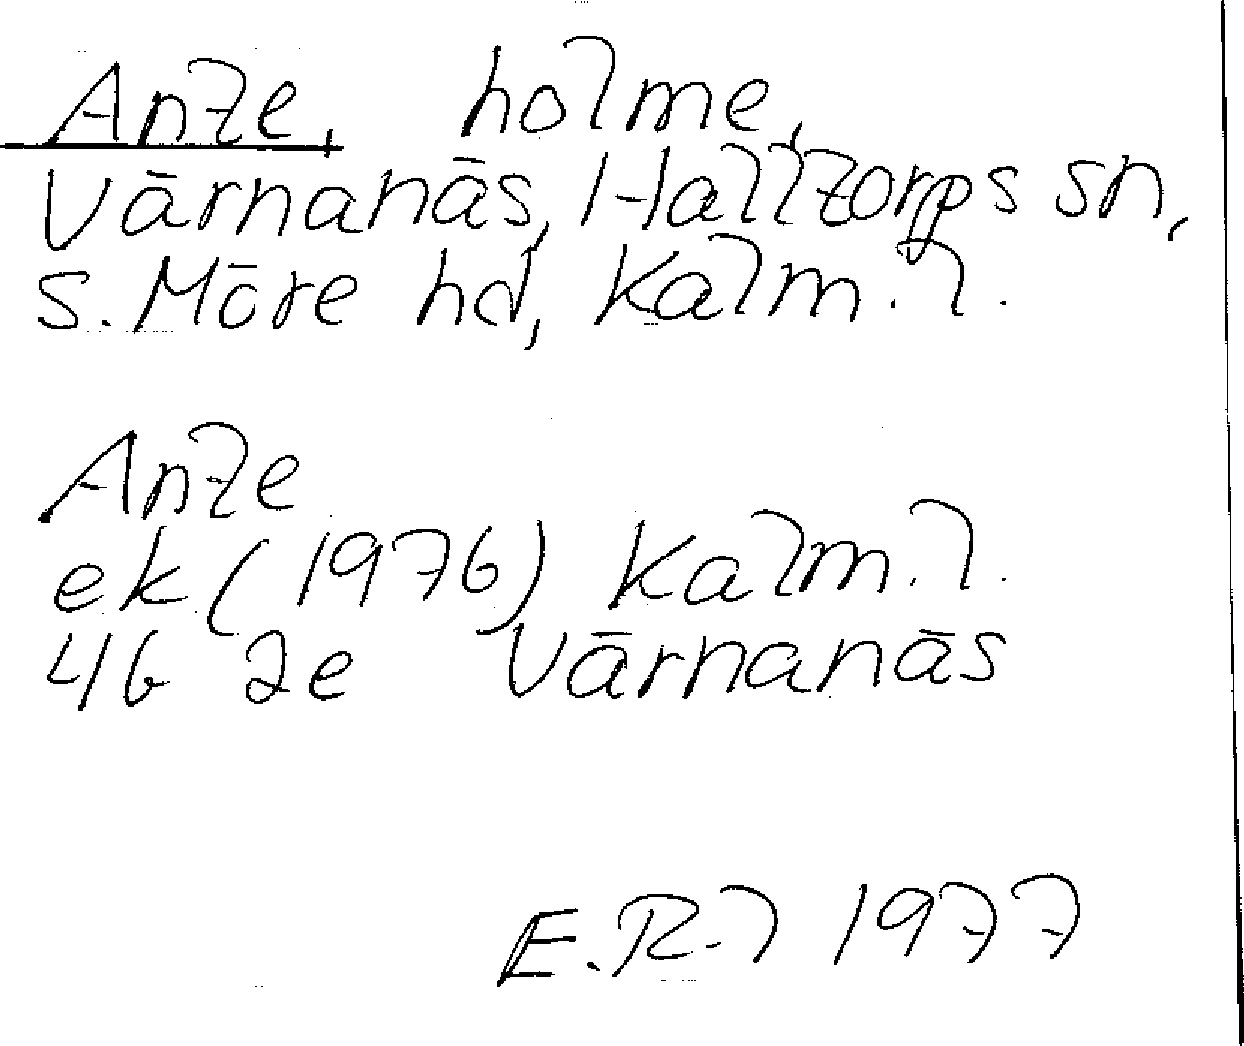 Ante, holme,
Värnanäs, Halltorps sn,
S. Möre hd, Kalm. l.
Ante
ek (1976) Kalm. l.
4G 2e Värnanäs
E.R-l 1977